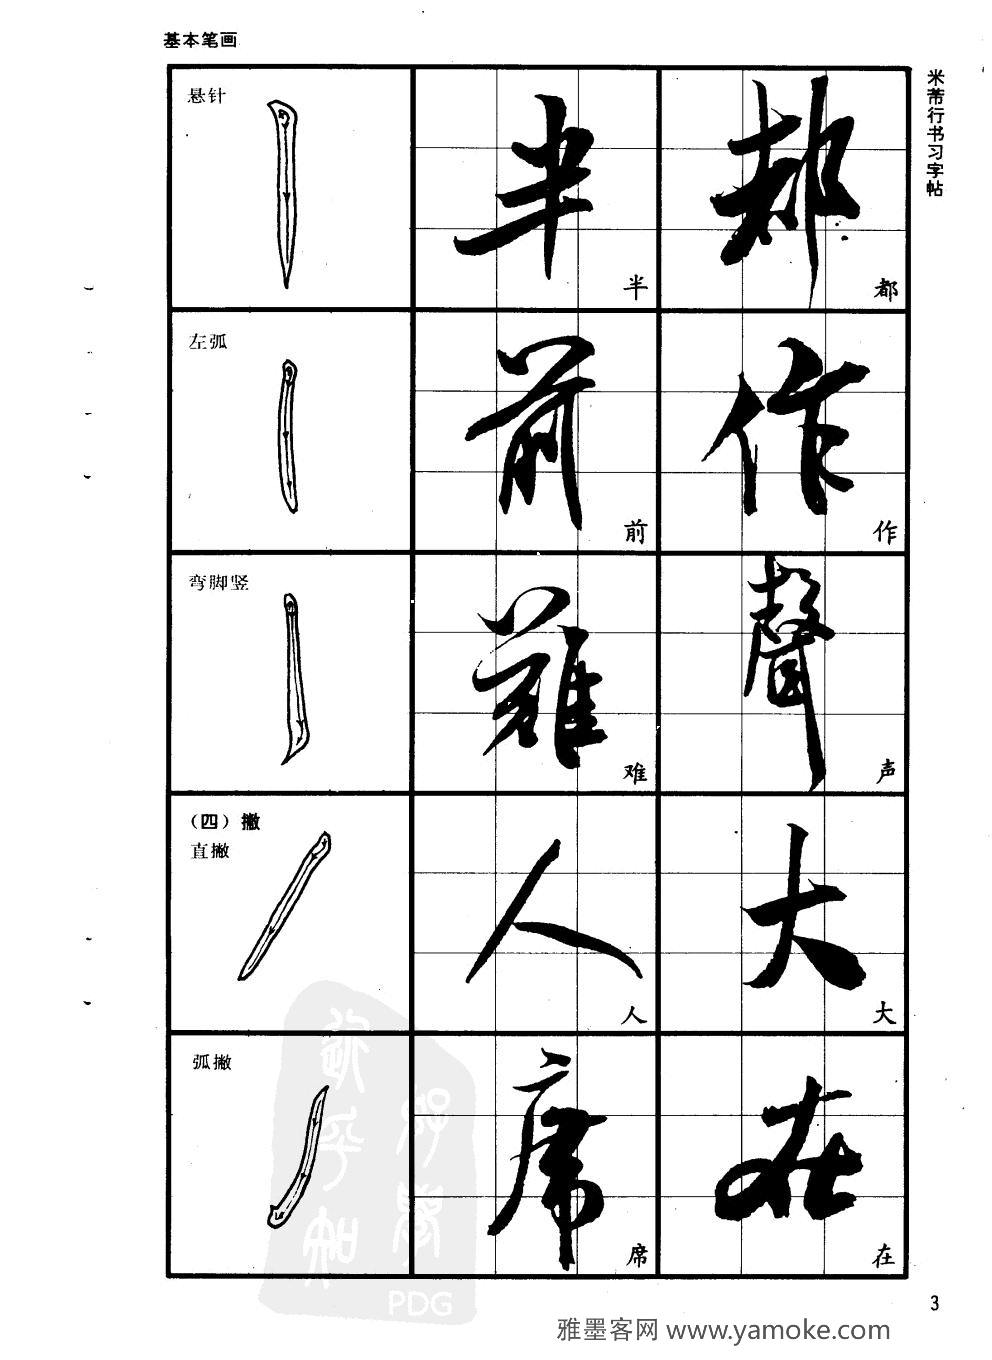 基本笔画
米芾行书习字帖
悬针
半
半
都
都
左弧
前
前
作
作
弯脚竖
難
难
聲
声
（四）撇
直撇
人
人
大
大
弧撇
席
席
在
在
PDG
3
雅墨客网 www.yamoke.com